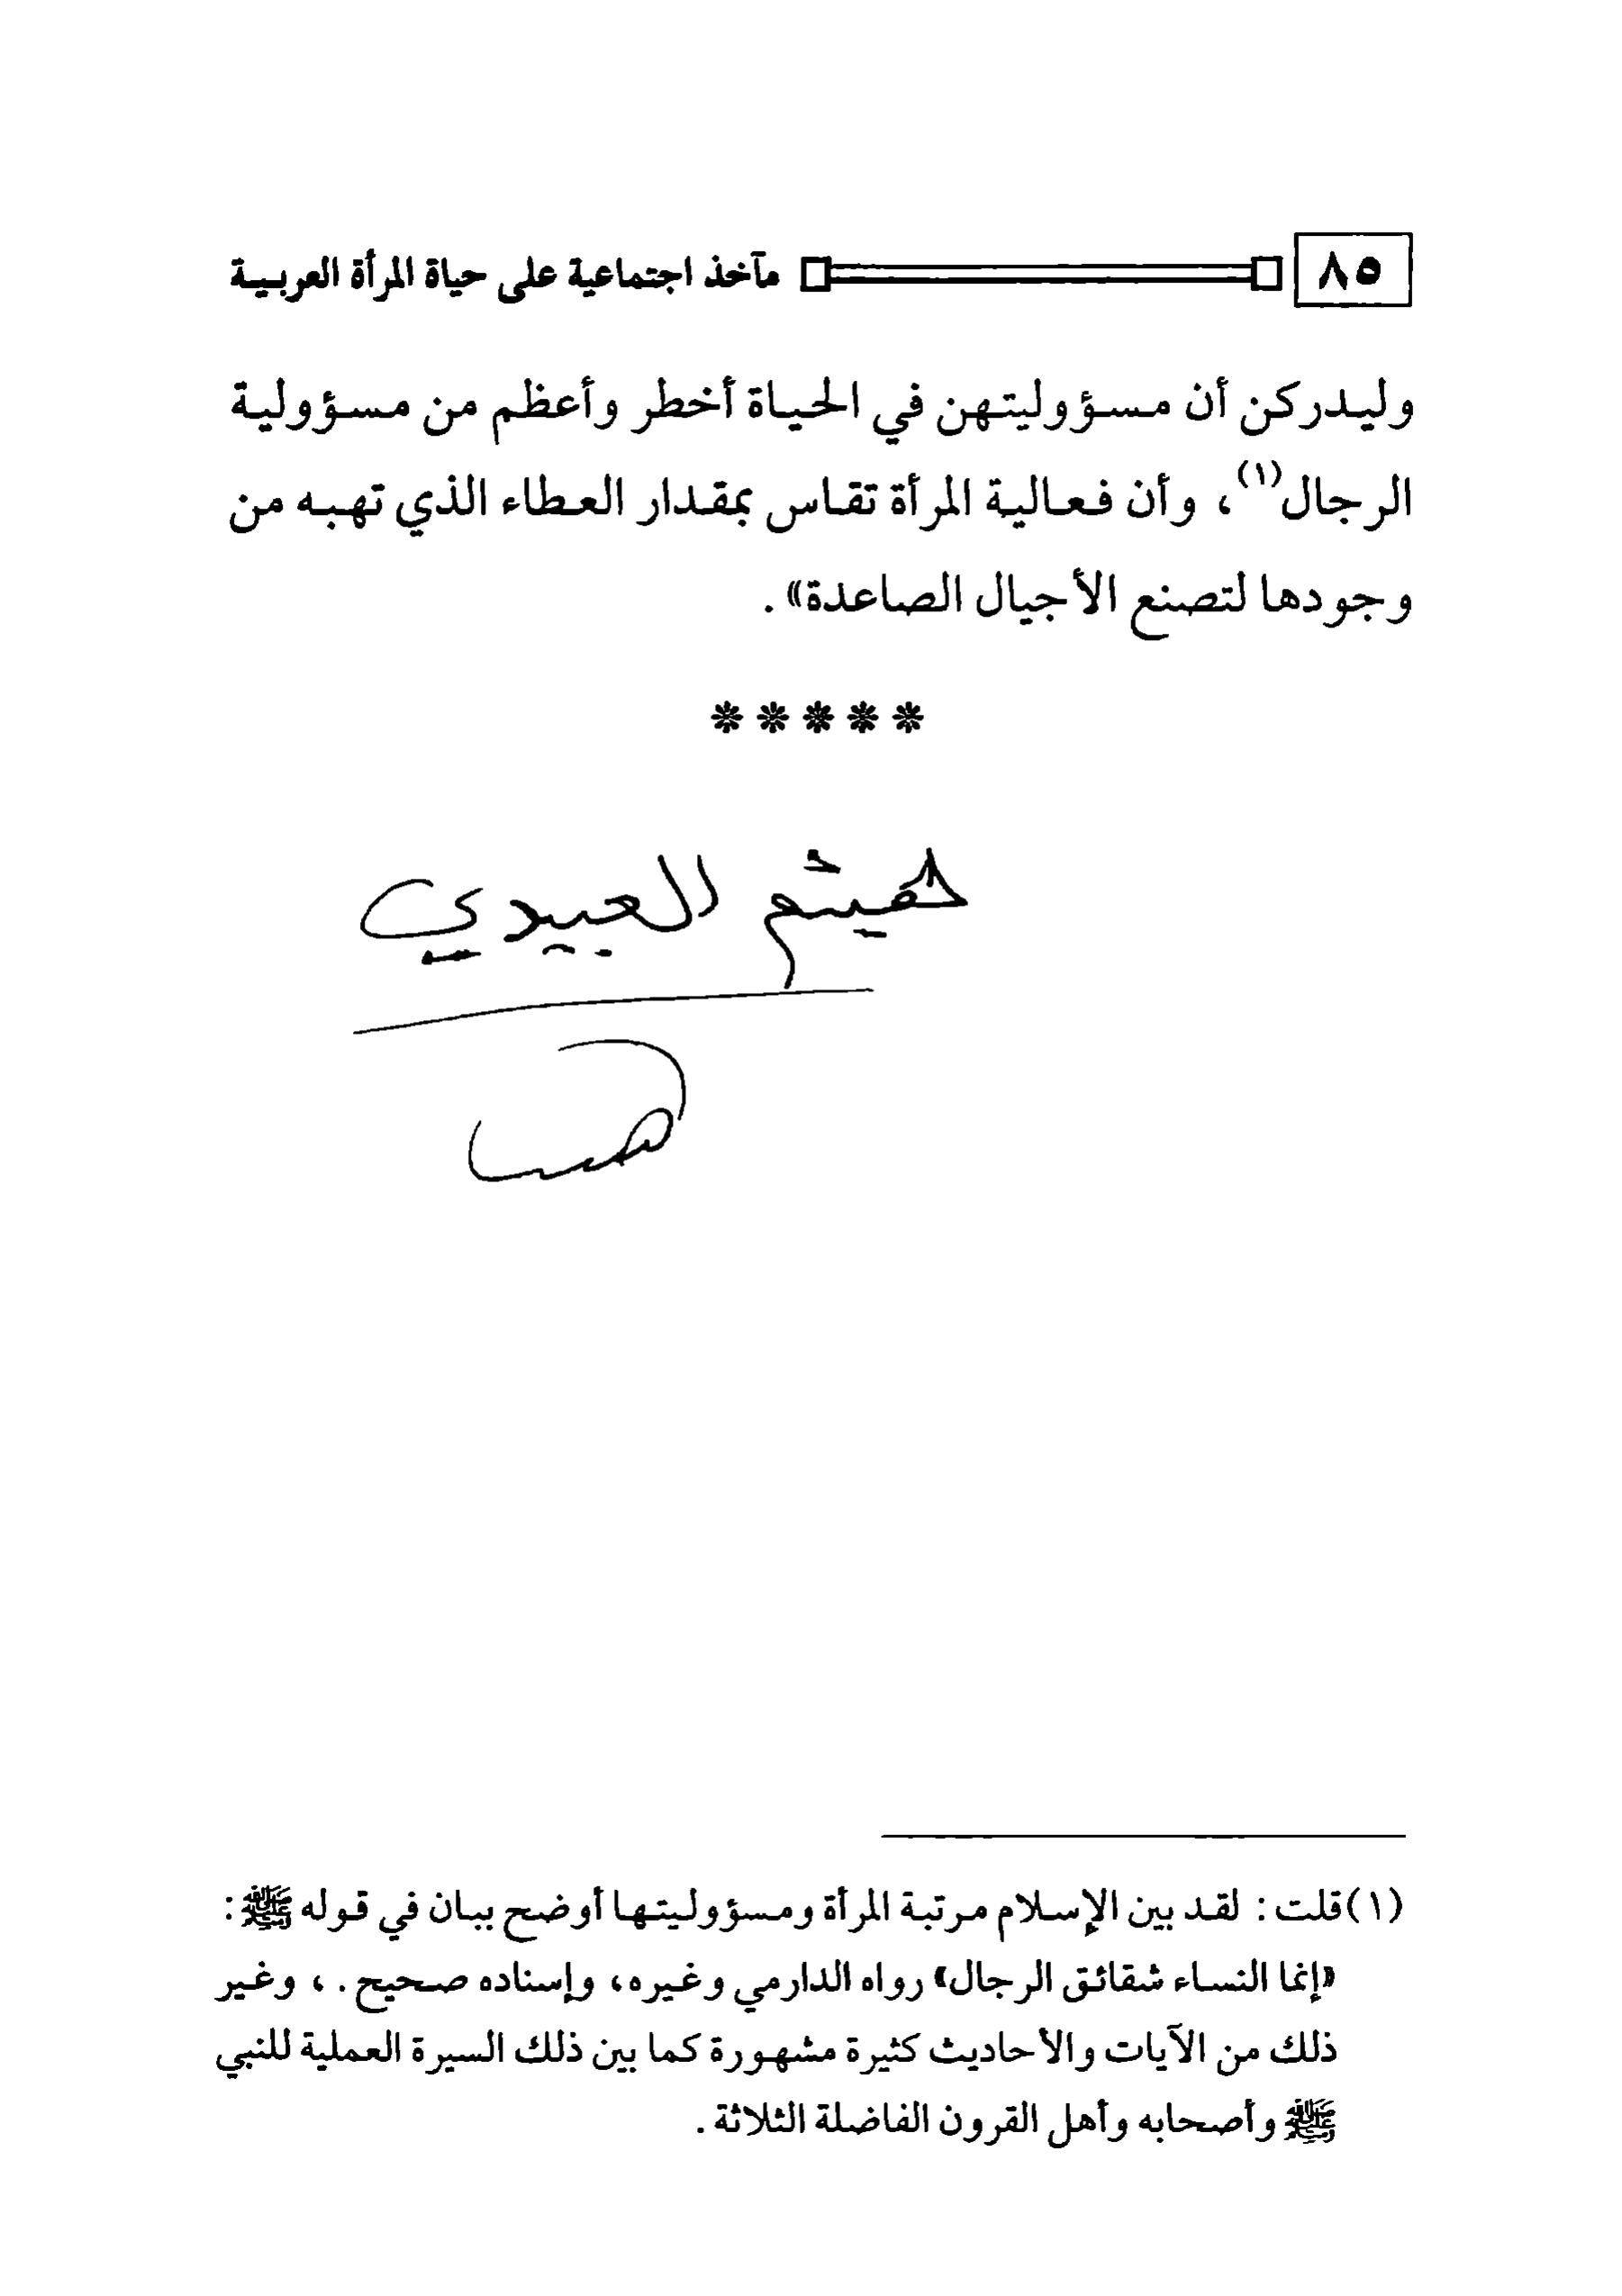 ٨٥ مآخذ اجتماعية على حياة المرأة العربية
وليدركن أن مسؤوليتهن في الحياة أخطر وأعظم من مسؤولية
الرجال(١)، وأن فعالية المرأة تقاس بمقدار العطاء الذي تهبه من
وجودها لتصنع الأجيال الصاعدة» .
*****
هيثم العبيدي
(١) قلت : لقد بين الإسلام مرتبة المرأة ومسؤوليتها أوضح بيان في قوله ﷺ :
«إنما النساء شقائق الرجال» رواه الدارمي وغيره، وإسناده صحيح . ، وغير
ذلك من الآيات والأحاديث كثيرة مشهورة كما بين ذلك السيرة العملية للنبي
ﷺ وأصحابه وأهل القرون الفاضلة الثلاثة .